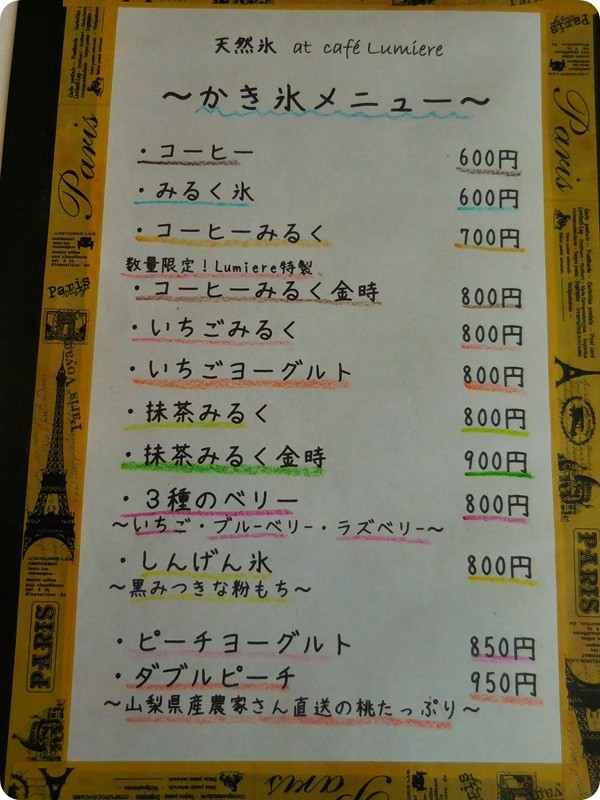 天然氷 at café Lumiere
～かき氷メニュー～
・コーヒー 600円
・みるく氷 600円
・コーヒーみるく 700円
数量限定！Lumiere特製
・コーヒーみるく金時 800円
・いちごみるく 800円
・いちごヨーグルト 800円
・抹茶みるく 800円
・抹茶みるく金時 900円
・３種のベリー 800円
～いちご・ブルーベリー・ラズベリー～
・しんげん氷 800円
～黒みつきな粉もち～
・ピーチヨーグルト 850円
・ダブルピーチ 950円
～山梨県産農家さん直送の桃たっぷり～
Paris
Paris
Paris
PARIS
PARIS
Paris